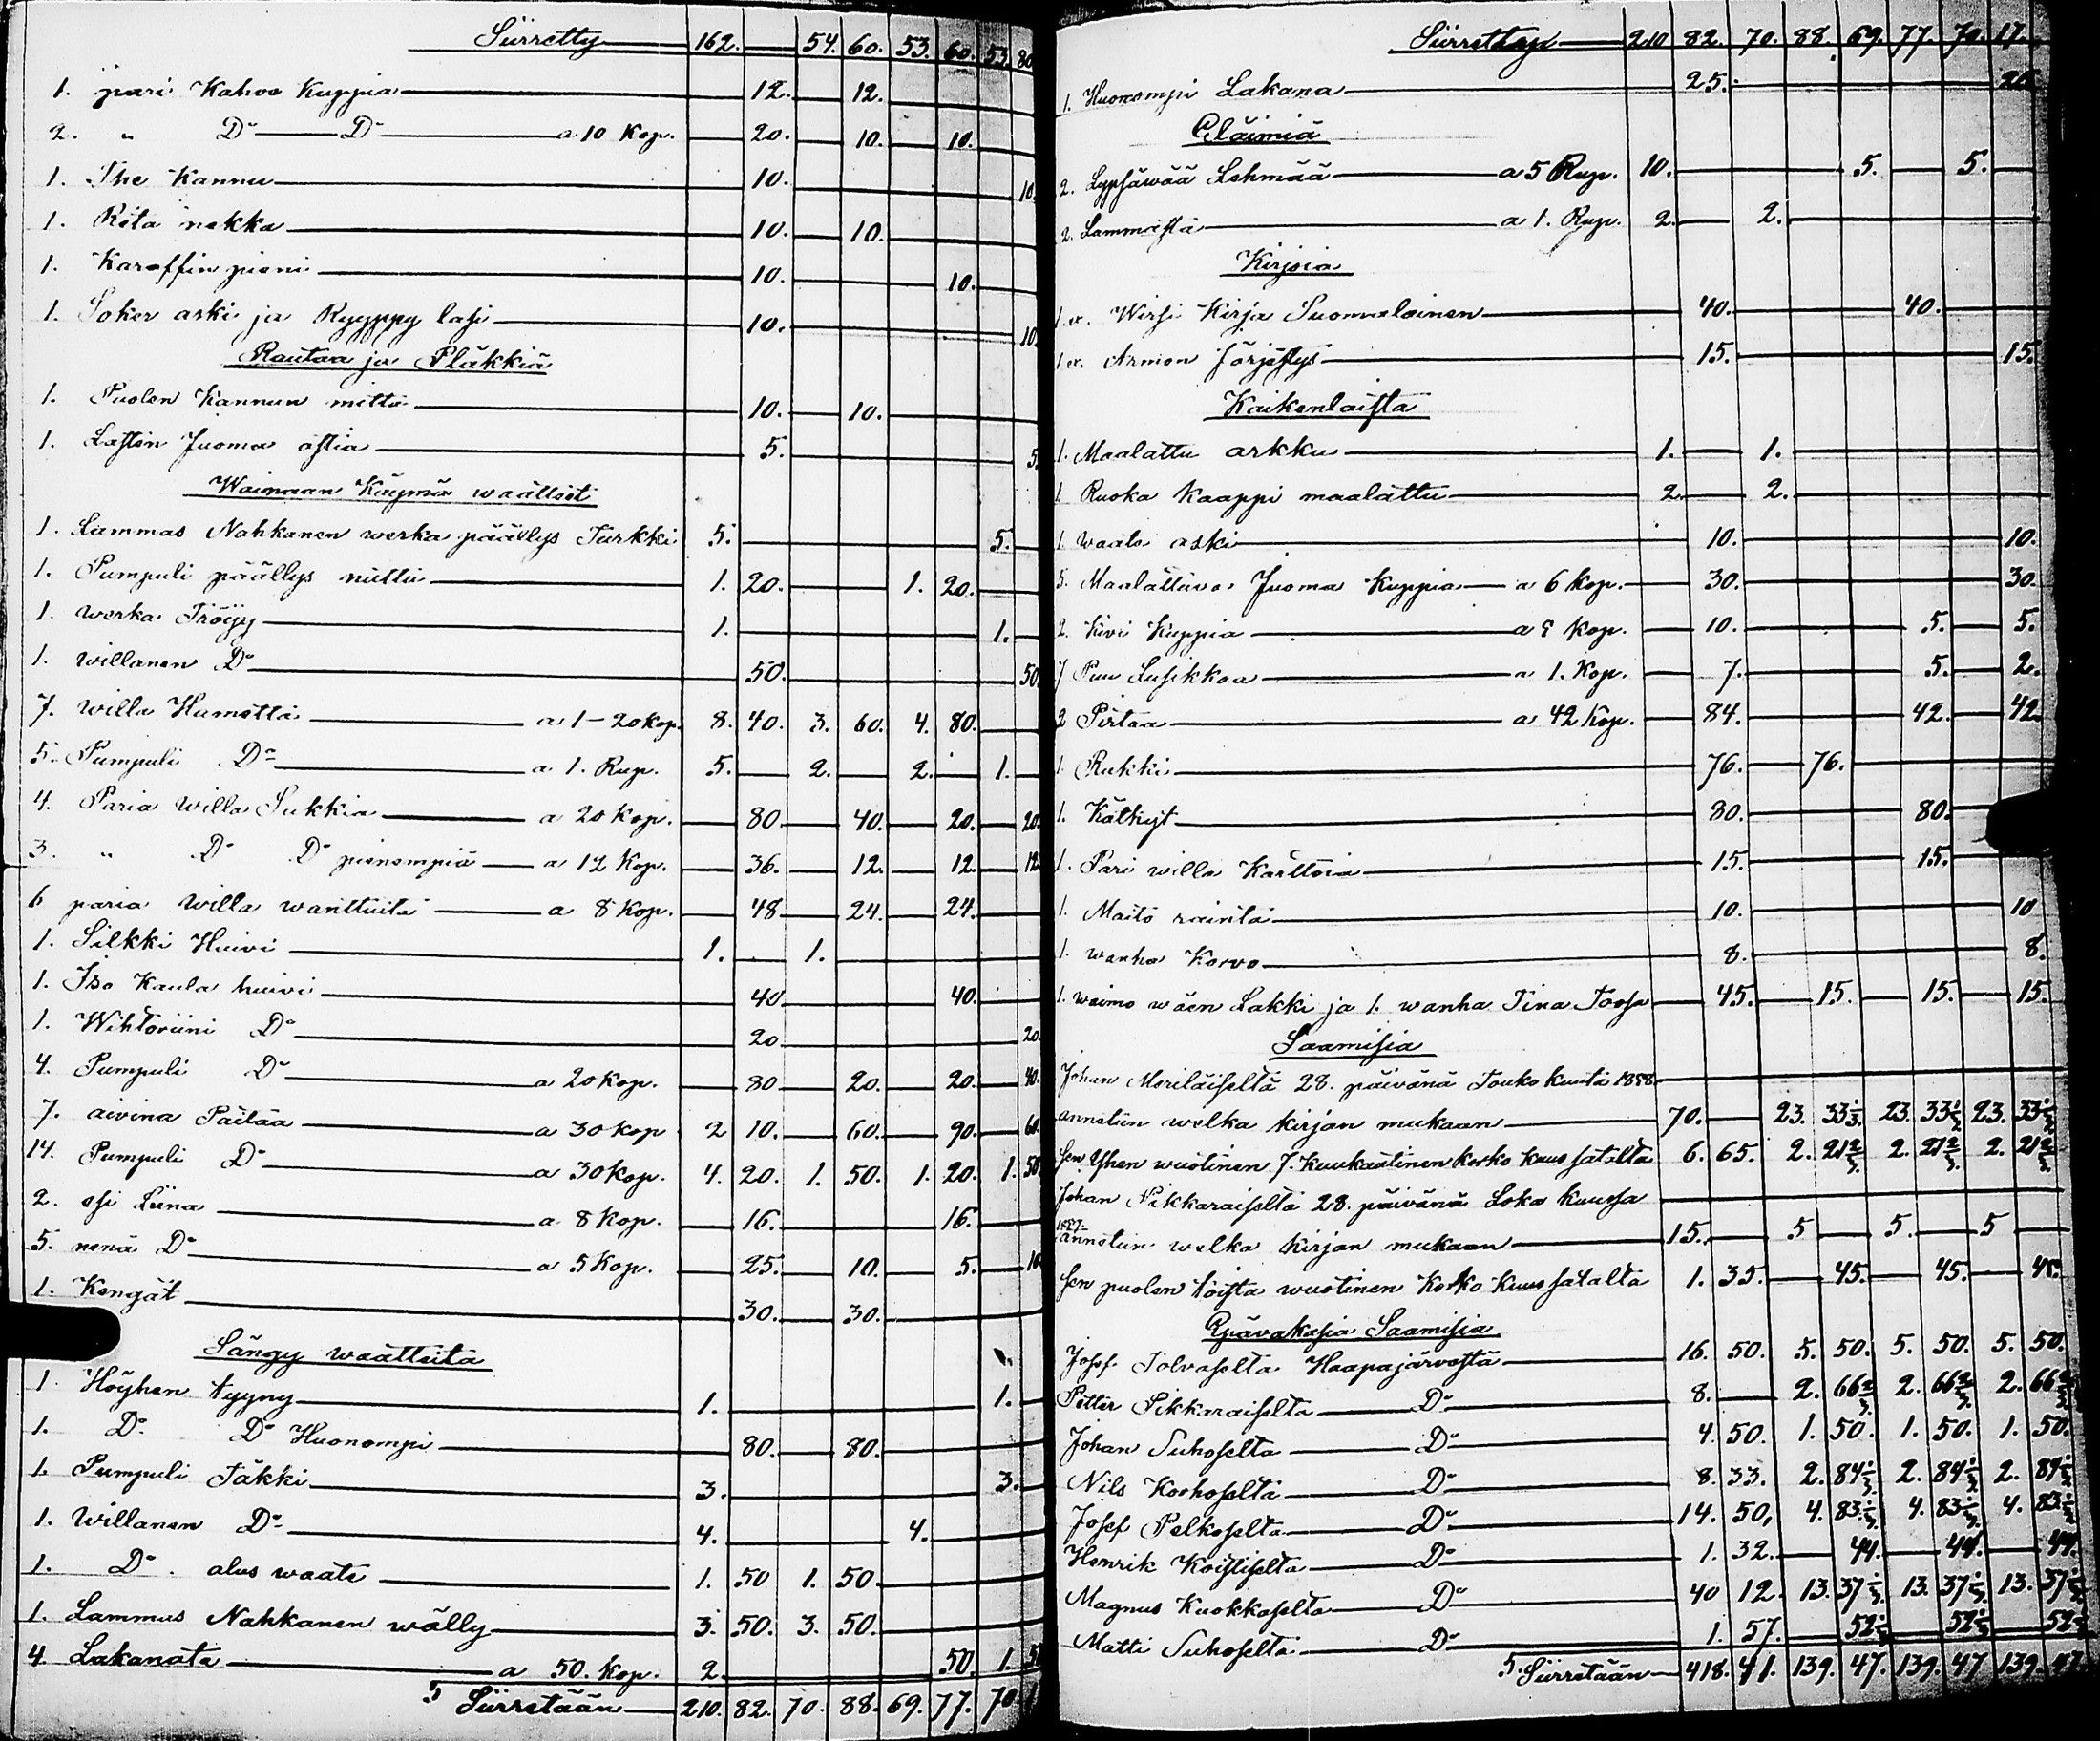 Siirretty 162. 54. 60. 53. 60. 53 80
1. pari Kahve Kuppia 12. 12.
2. " Do Do a 10 Kop. 20. 10. 10.
1. The Kannu 10. 10
1. Röta nekka 10. 10.
1. Karaffin pieni 10. 10.
1. Soker aski ja Ryyppy lasi 10. 10
Rautaa ja Pläkkiä
1. Puolen Kannun mitta 10. 10.
1. Lasten Juoma astia 5. 5
Wainaan Käymä waatteet
1. Lammas Nahkanen werka päällys Turkki 5. 5.
1. Pumpuli päällys nuttu 1. 20. 1. 20.
1. werka Tröijy 1. 1.
1. willanen Do 50. 50
7. willa Hametta a 1-20 kop. 8. 40. 3. 60. 4. 80.
5. Pumpuli Do a 1. Rup. 5. 2. 2. 1.
4. Paria willa Sukkia a 20 kop. 80. 40. 20. 20
3. " Do Do pienempiä a 12 Kop. 36. 12. 12. 12
6 paria willa wanttuita a 8 Kop. 48 24. 24.
1. Silkki Huivi 1. 1.
1. Iso Kaula huivi 40 40.
1. Wihtoriini Do 20 20
4. Pumpuli Do a 20 Kop. 80 20. 20. 40.
7. aivina Paitaa a 30 Kop 2 10. 60. 90. 60
14. Pumpuli Do a 30 Kop. 4. 20. 1. 50. 1. 20. 1. 50
2. esi Liina a 8 Kop. 16. 16.
5. nenä Do a 5 Kop. 25. 10. 5. 10
1. Kengät 30. 30.
Sängy waatteita
1 Höyhen tyyny 1. 1.
1. Do Do Huonompi 80. 80.
1. Pumpuli Täkki 3. 3.
1. Willanen Do 4. 4.
1. Do alus waate 1. 50 1. 50.
1. Lammas Nahkanen wälly 3. 50. 3. 50.
4. Lakanata a 50. Kop. 2. 50. 1. 50
Siirretään 210. 82. 70. 88. 69. 77. 70
Siirrettyä 210 82. 70. 88. 69. 77. 70 17.
1. Huonompi Lakana 25. 25
Eläimiä
2. Lypsäwää Lehmää a 5 Rup. 10. 5. 5.
2. Lammasta a 1. Rup. 2. 2.
Kirjoja
1 Wirsi Kirja Suomalainen 40. 40.
1 Armon Järjestys 15. 15.
Kaikenlaista
1. Maalattu arkku 1. 1.
1 Ruoka Kaappi maalattu 2 2.
1. waate aski 10. 10.
5. Maalattua Juoma Kuppia a 6 kop. 30. 30.
2. Kivi Kuppia a 5 Kop. 10. 5. 5.
7 Puu Lusikkaa a 1. Kop. 7. 5. 2.
2 Pirtaa a 42 Kop. 84. 42. 42.
1. Rukki 76. 76.
1. Kätkyt 80. 80.
1. Pari willa Karttoia 15. 15.
1. Maito rainta 10. 10
1. wanha Korvo 8. 8.
1. waimo wäen Lakki ja 1. wanha Tina Toosa 45. 15. 15. 15.
Saamisia
Johan Meriläiseltä 28. päivänä Touko kuuta 1858
annetun welka kirjan mukaan 70. 23. 33 1/3. 23. 33 1/3 23. 33 1/3
sen Yhen wuotinen 7. kuukautinen korko kuus satalta 6. 65. 2. 21 2/3. 2. 21 2/3. 2. 21 2/3.
Johan Pikkaraiselta 28. päivänä Loka kuussa
1857 annetun welka kirjan mukaan 15. 5 5. 5
sen puolen toista wuotinen Korko Kuus satalta 1. 35. 45. 45. 45.
Epävakasia Saamisia
Josef Tolvaselta Haapajärvestä 16. 50. 5. 50. 5. 50. 5. 50.
Petter Pikkaraiselta Do 8. 2. 66 2/3. 2. 66 2/3. 2. 66 2/3
Johan Suhoselta Do 4. 50. 1. 50. 1. 50. 1. 50.
Nils Korhoselta Do 8. 33. 2. 84 1/3. 2. 84 1/3. 2. 84 1/3
Josef Pelkoselta Do 14. 50, 4. 83 1/3. 4. 83 1/3. 4. 83 1/3
Henrik Koistiselta Do 1. 32. 44. 44. 44.
Magnus Kuokkaselta Do 40 12. 13. 37 1/3. 13. 37 1/3. 13. 37 1/3
Matti Suhoselta Do 1. 57. 52 1/3 52 1/3 52 1/3
Siirretään 418. 41. 139. 47. 139. 47 139. 47